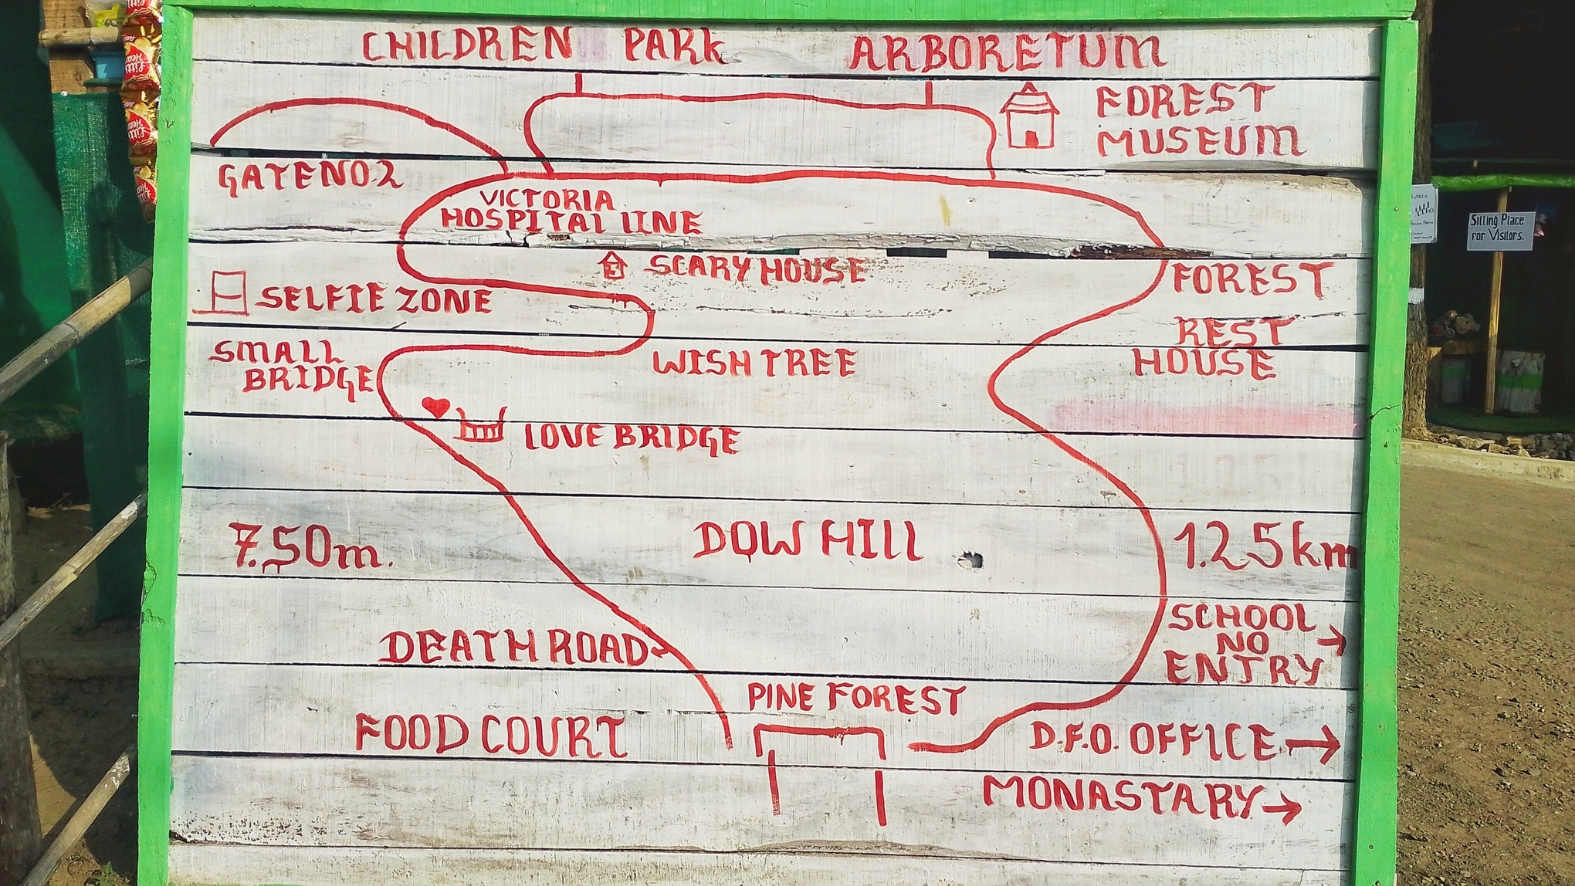 CHILDREN PARK
ARBORETUM
FOREST
MUSEUM
GATE NO 2
VICTORIA
HOSPITAL LINE
SCARY HOUSE
SELFIE ZONE
FOREST
REST
HOUSE
SMALL
BRIDGE
WISH TREE
LOVE BRIDGE
7.50m.
DOW HILL
1.25km
SCHOOL
NO
ENTRY
DEATH ROAD
PINE FOREST
FOOD COURT
D.F.O. OFFICE
MONASTARY
Sitting Place
for Visitors.